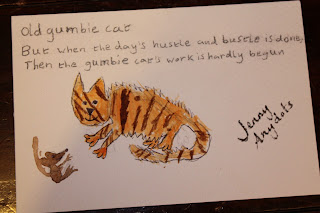 Old gumbie cat
But when the day's hustle and bustle is done,
Then the gumbie cat's work is hardly begun
Jenny
Any dots